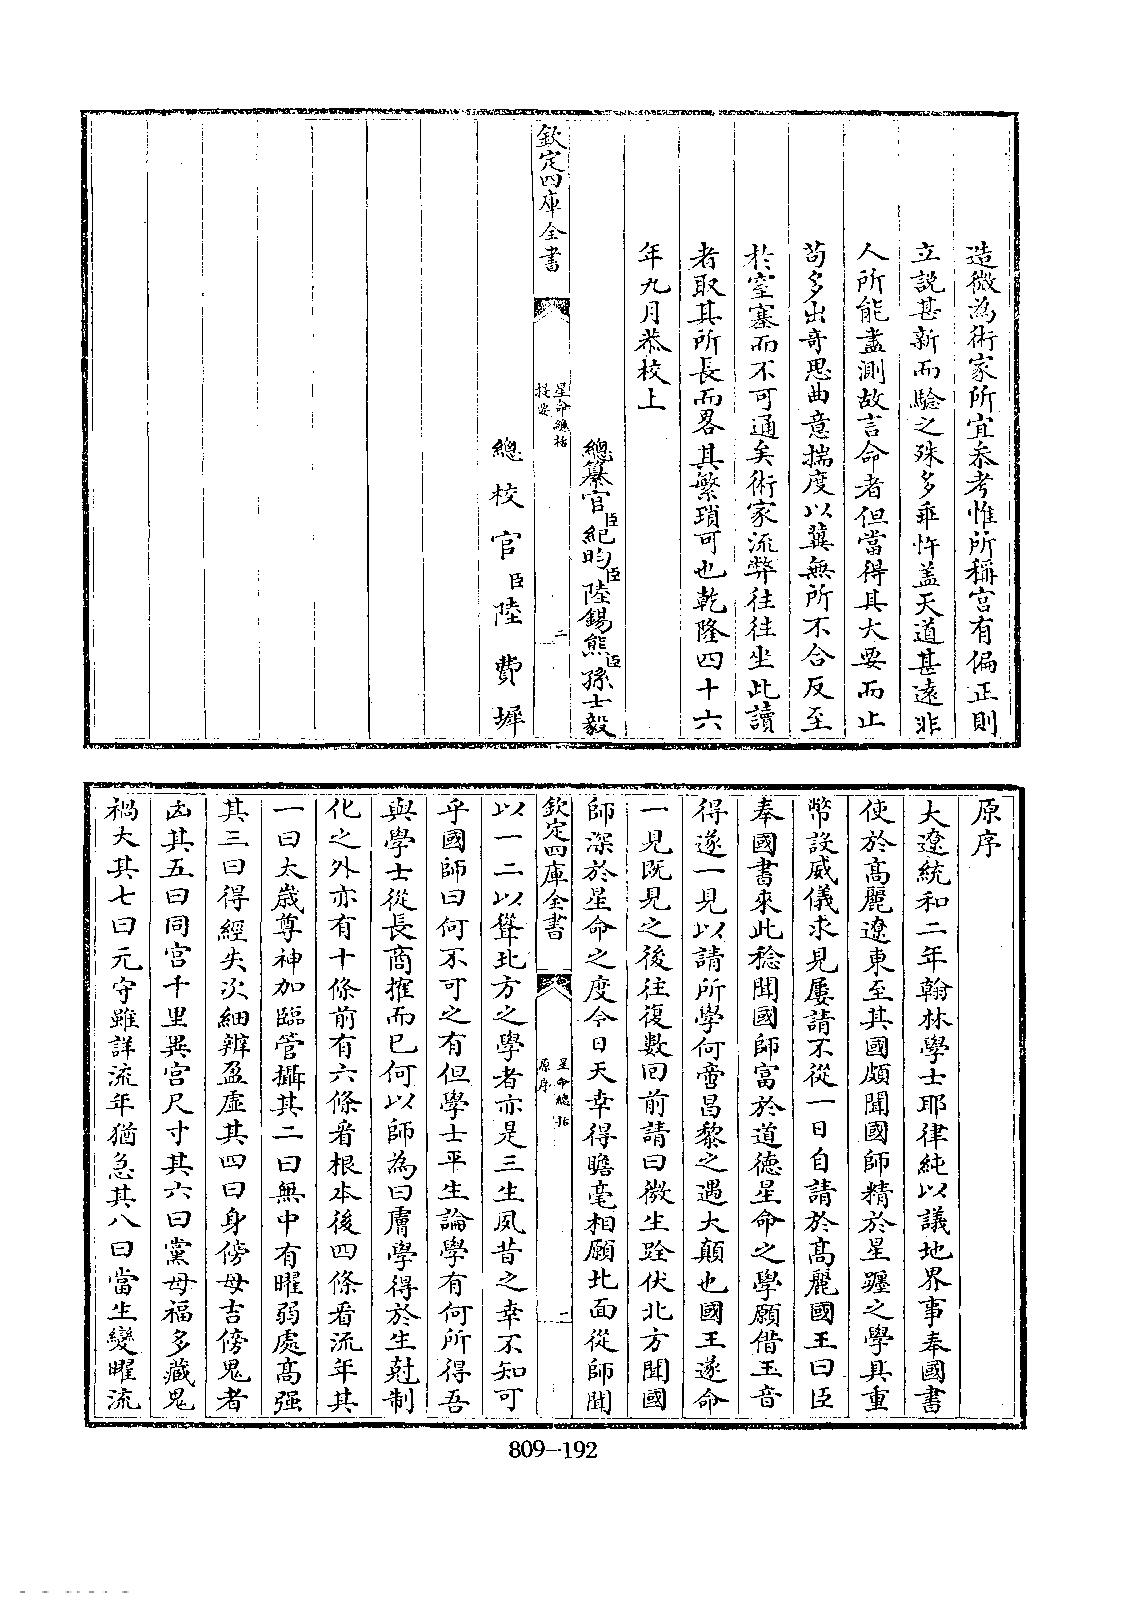 造微為術家所宜叅考惟所稱宫有偏正則
立説甚新而驗之殊多乖忤盖天道甚遠非
人所能盡測故言命者但當得其大要而止
苟多出奇思曲意揣度以冀無所不合反至
於窒塞而不可通矣術家流弊往往坐此讀
者取其所長而畧其繁瑣可也乾隆四十六
年九月恭校上
總纂官臣紀昀臣陸錫熊臣孫士毅
欽定四庫全書
星命總括
提要
二
總校官臣陸費墀
原序
大遼統和二年翰林學士耶律純以議地界事奉國書
使於髙麗遼東至其國頗聞國師精於星躔之學具重
幣設威儀求見屢請不從一日自請於髙麗國王曰臣
奉國書來此稔聞國師富於道徳星命之學願借玉音
得遂一見以請所學何啻昌黎之遇大顛也國王遂命
一見既見之後往復數回前請曰微生跧伏北方聞國
師深於星命之度今日天幸得瞻毫相願北面從師聞
欽定四庫全書
星命總括
原序
一
以一二以聳北方之學者亦是三生夙昔之幸不知可
乎國師曰何不可之有但學士平生論學有何所得吾
與學士從長商搉而已何以師為曰膚學得於生尅制
化之外亦有十條前有六條看根本後四條看流年其
一曰太歲尊神加臨管攝其二曰無中有曜弱處髙强
其三曰得經失次細辨盈虚其四曰身傍母吉傍鬼者
凶其五曰同宫千里異宫尺寸其六曰黨母福多藏鬼
禍大其七曰元守雖詳流年猶急其八曰當生變曜流
809-192